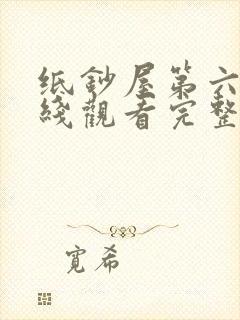 纸鈔屋第六
綫觀看完整
寬希